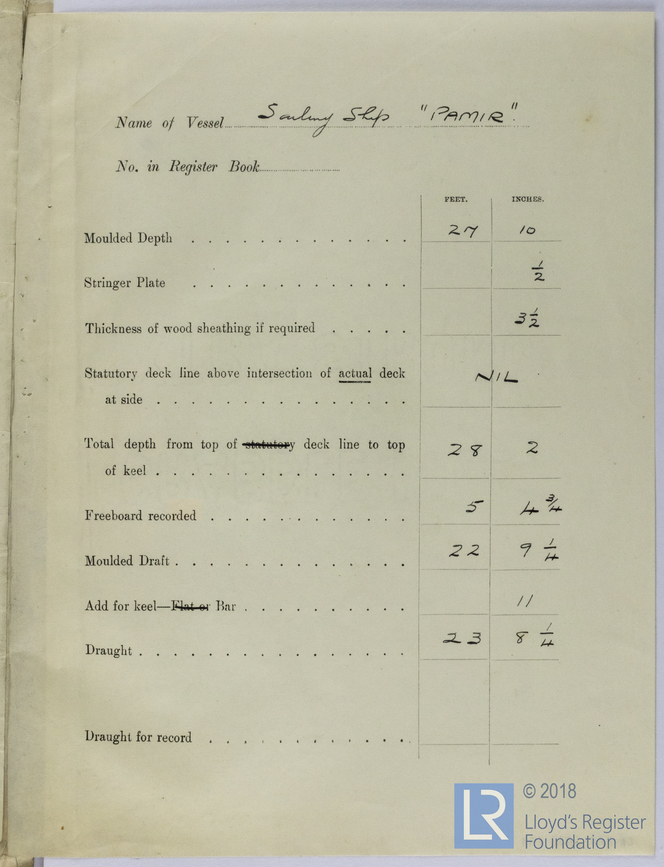 Name of Vessel Sailing Ship "PAMIR".
No. in Register Book
FEET. INCHES.
Moulded Depth 27 10
Stringer Plate 1/2
Thickness of wood sheathing if required 3 1/2
Statutory deck line above intersection of actual deck
at side NIL
Total depth from top of statutory deck line to top
of keel 28 2
Freeboard recorded 5 4 3/4
Moulded Draft 22 9 1/4
Add for keel—Flat or Bar 11
Draught 23 8 1/4
Draught for record
LR © 2018
Lloyd's Register
Foundation